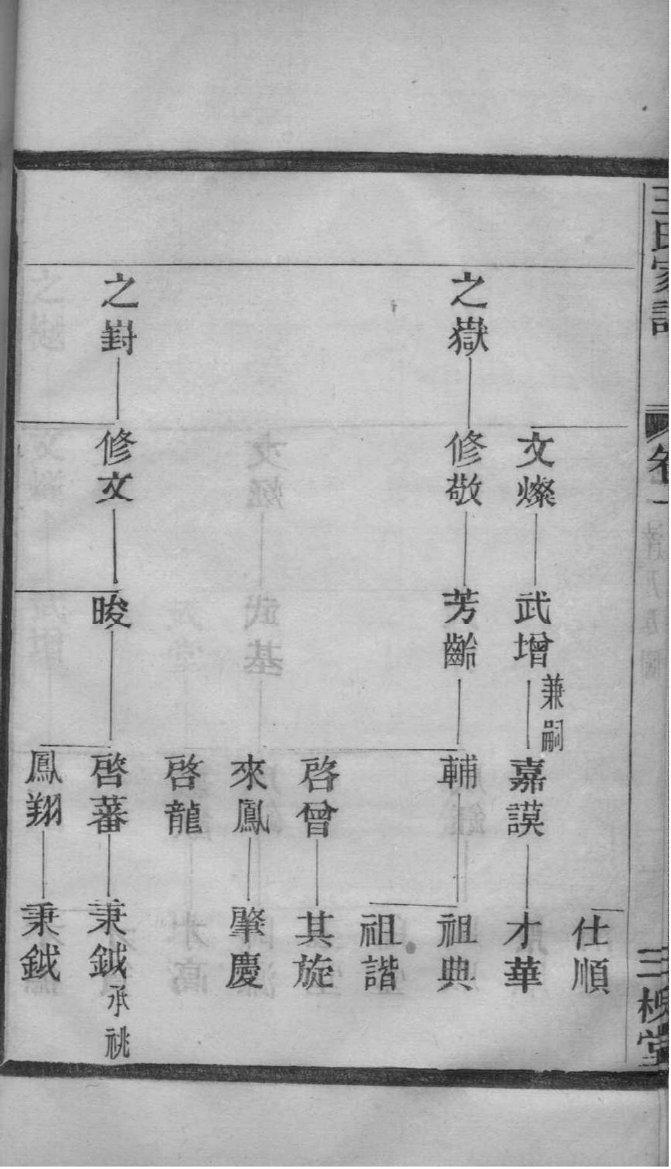 王氏家譜
卷一
三槐堂
仕順
文燦
武增
兼嗣
嘉謨
才華
之嶽
修敬
芳齡
輔
祖典
祖諧
啓曾
其旋
來鳳
肇慶
啓龍
之對
修文
晙
啓蕃
秉鉞
承祧
鳳翔
秉鉞